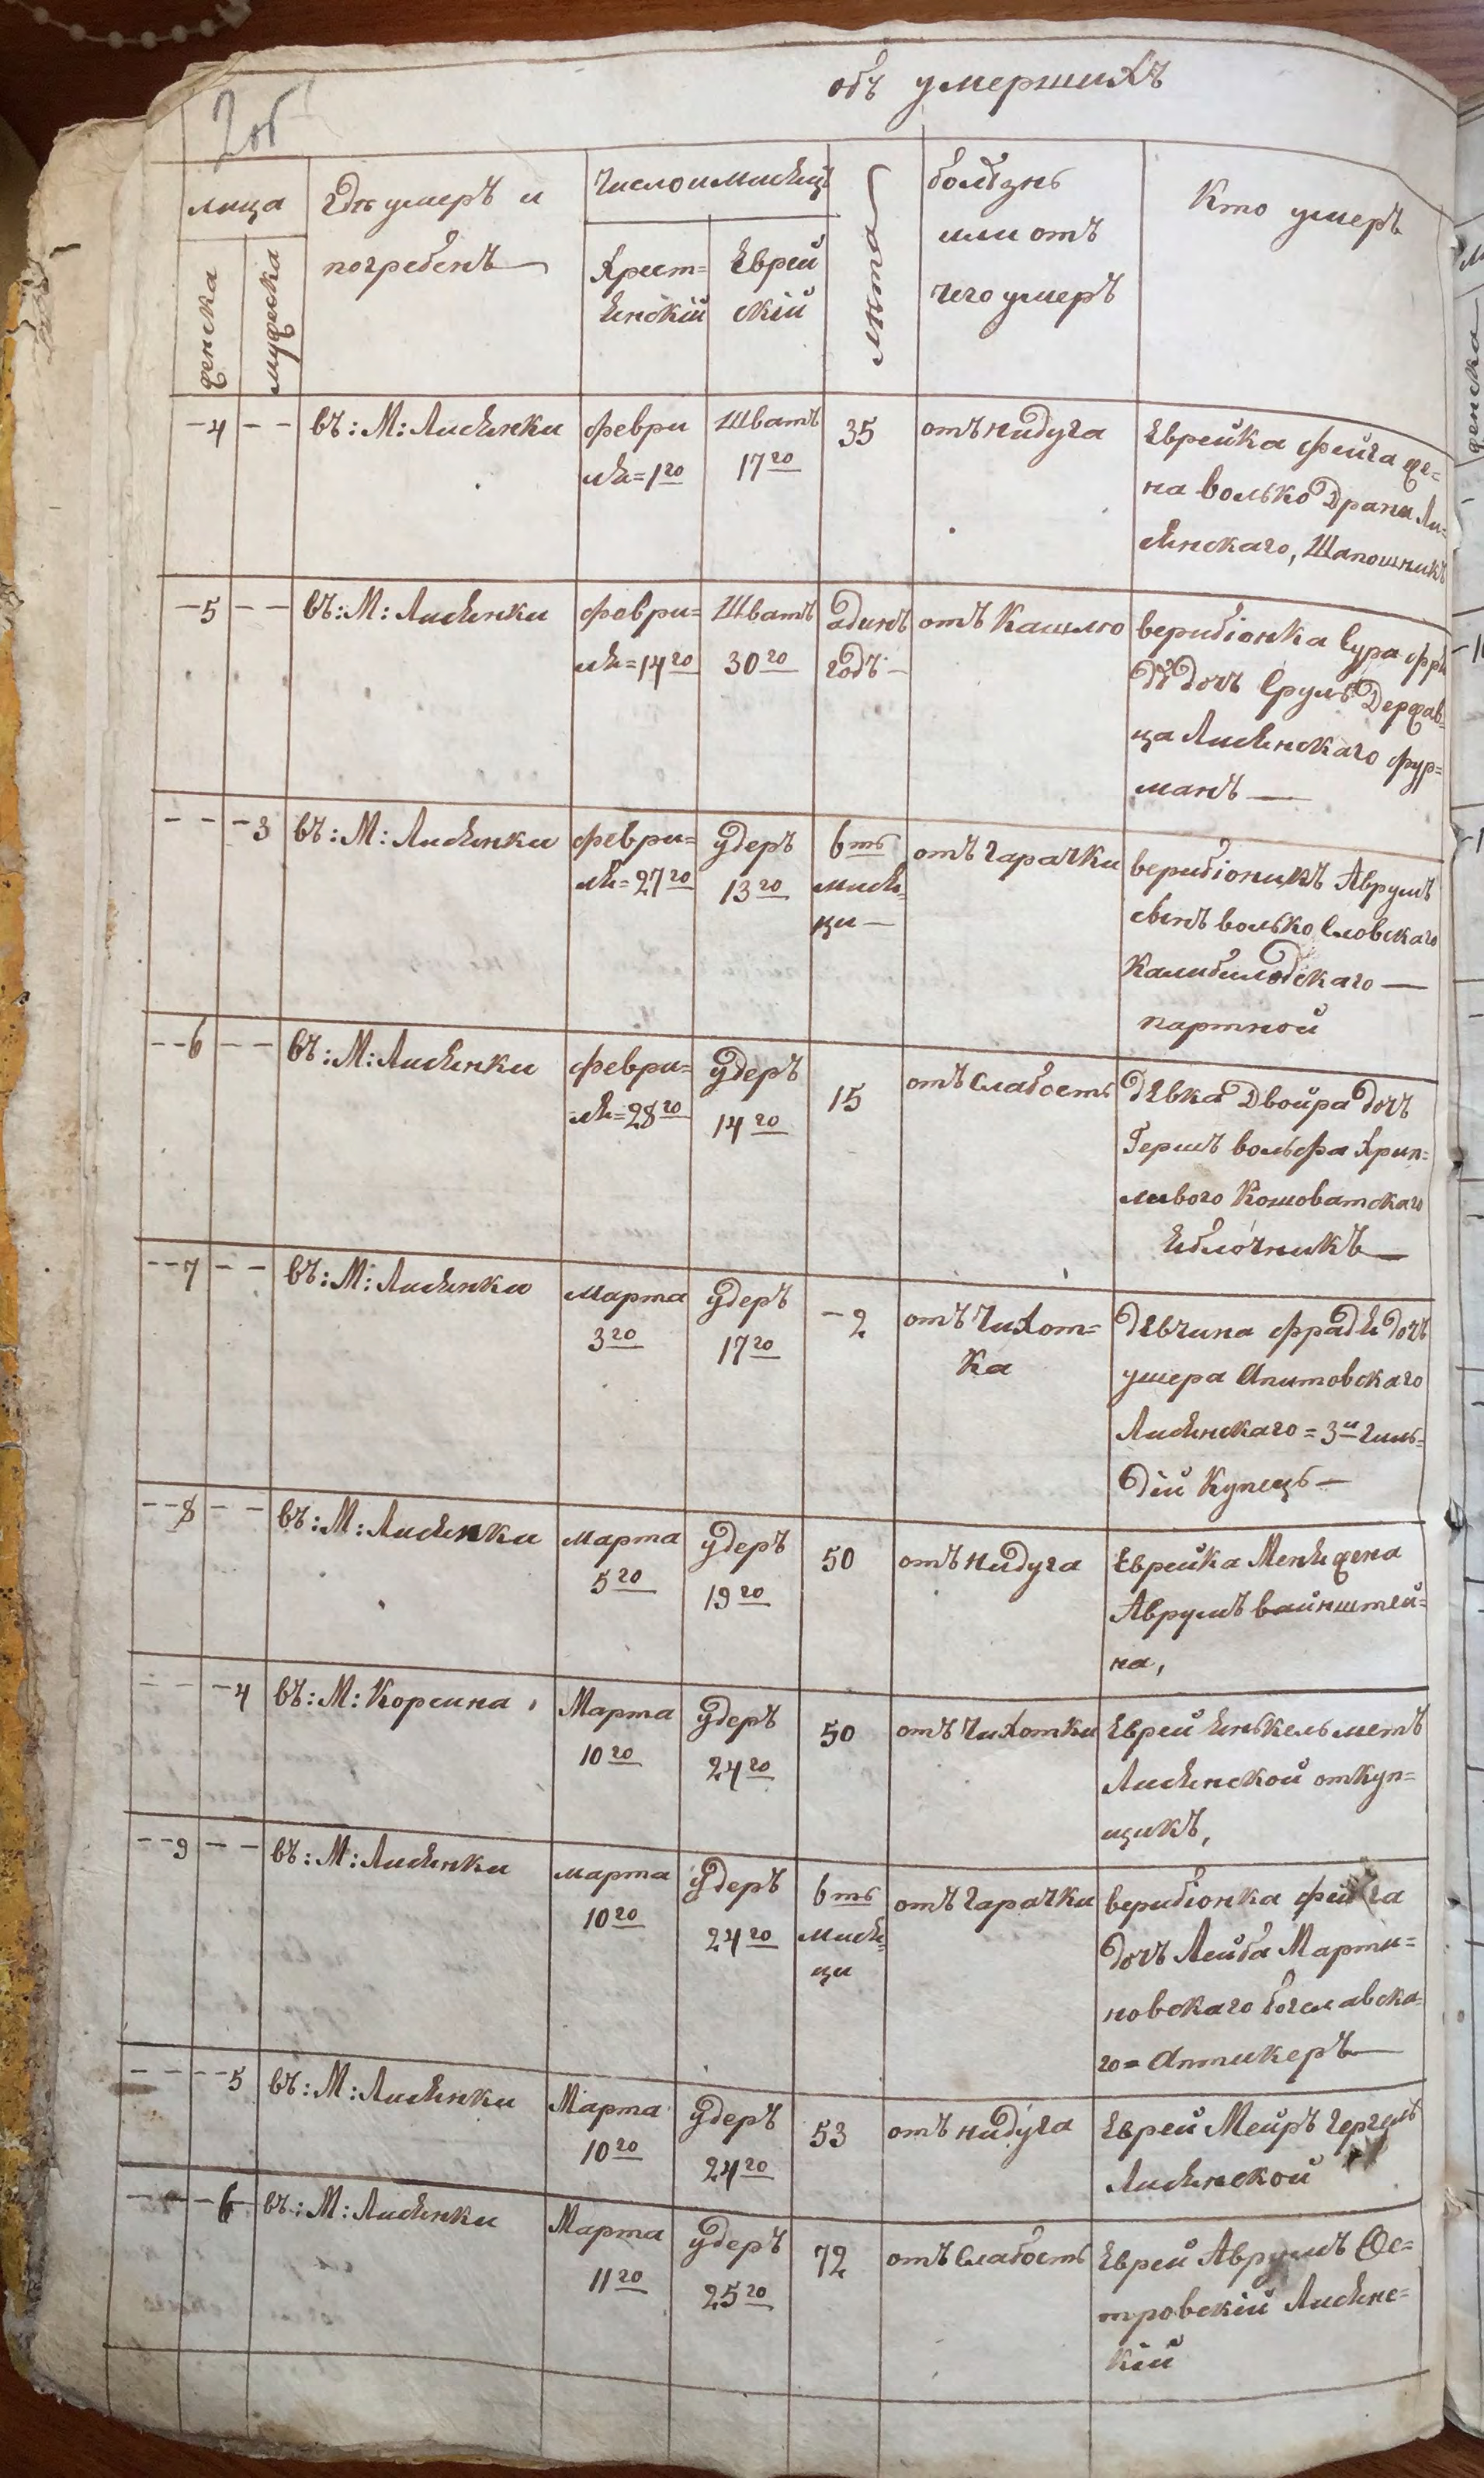 2об
объ умершихъ
лица
женска
мужеска
гдѣ умеръ и
погребенъ
Число и месяцъ
Хрест=
янскій
Еврей
скій
лѣта
болѣзнь
или отъ
чего умеръ
Кто умеръ
4 въ: М: Лисянки
феври
ля = 1го
Шватъ
17го
35
отъ нидуга
Еврейка Фейга же=
на Волько Драни Ли=
сянскаго, Шапошникъ
5 въ: М: Лисянки
феври=
ля = 14го
Шватъ
30го
адинъ
годъ
отъ Кашлю
верибіонка Сура
дочъ Сруль Держав
ца Лисянскаго фур=
манъ
3 въ: М: Лисянки
феври=
ля = 27го
удеръ
13го
6ть
мися
ци
отъ гарачки
верибіоникъ Аврумъ
сынъ волько Словскаго
Калибилодскаго
партной
6 въ: М: Лисянки
феври=
ля = 28го
удеръ
14го
15
отъ Слабость
дѣвка Двойра дочъ
Гершъ вольфа Хрип=
ливого Кошоватскаго
яблочникъ
7 въ: М: Лисянки
марта
3го
удеръ
17го
2
отъ чихот=
ка
дѣвчина фрадя дочъ
ушера Апитовскаго
Лисянскаго = 3й гиль=
дій Купецъ
8 въ: М: Лисянки
марта
5го
удеръ
19го
50
отъ нидуга
Еврейка Меня жена
Аврумъ вайнштей=
на,
4 въ: М: Корсина
Марта
10го
удеръ
24го
50
отъ чихотки
Еврей Янькель метъ
Лисянской откуп=
щикъ,
9 въ: М: Лисянки
марта
10го
удеръ
24го
6ть
мися
ци
отъ гарачки
верибіонка фейга
дочъ Лейба Марти=
новскаго богславска
го = Аптикеръ
5 въ: М: Лисянки
Марта
10го
удеръ
24го
53
отъ нидуга
Еврей Мейръ
Лисянской
6 въ: М: Лисянки
Марта
11го
удеръ
25го
72
отъ Слабость
Еврей Аврумъ Ос=
тровскій Лисянс=
кій
женска